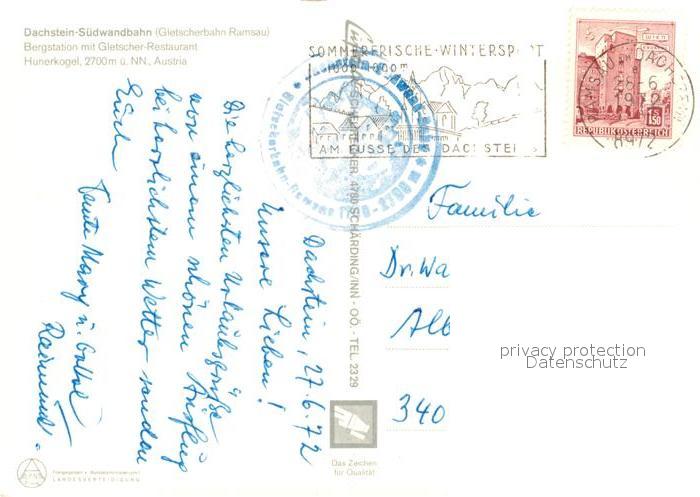 Dachstein-Südwandbahn (Gletscherbahn Ramsau)
Bergstation mit Gletscher-Restaurant
Hunerkogel, 2700m ü. NN., Austria
SOMMERFRISCHE-WINTERSPORT
AM FUSSE DES DACHSTEIN
WIEN
1.50
REPUBLIK ÖSTERREICH
8972
Dachstein, 27.6.72
Unsere Lieben!
Die herzlichsten Urlaubsgrüße
von einem schönen Ausflug
bei herrlichstem Wetter senden
Euch
Tante Mary u.
Raimund.
4780 SCHÄRDING/INN - OÖ. - TEL. 23 29
Familie
Dr. Wa
Alb
340
privacy protection
Datenschutz
Das Zeichen
für Qualität
LANDESVERTEIDIGUNG